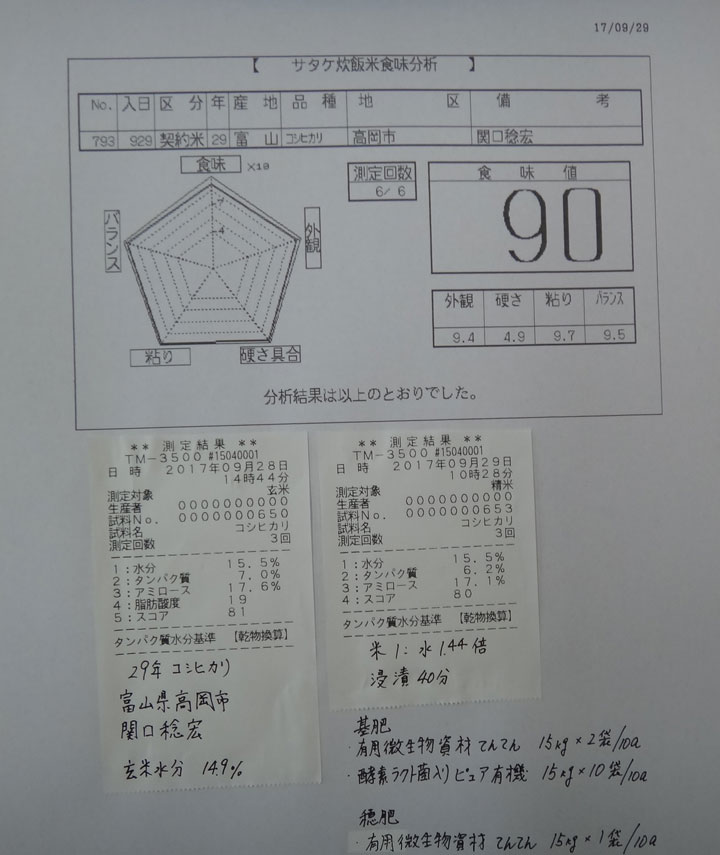 17/09/29
【 サタケ炊飯米食味分析 】
No. 入日 区分 年 産地 品種 地区 備考
793 929 契約米 29 富山 コシヒカリ 高岡市 関口稔宏
食味 ×10
7
4
バランス
外観
粘り
硬さ具合
測定回数
6/ 6
食味値
90
外観 硬さ 粘り バランス
9.4 4.9 9.7 9.5
分析結果は以上のとおりでした。
** 測定結果 **
TM-3500 #15040001
日 時 2017年09月28日
14時44分
測定対象 玄米
生産者 0000000000
試料No. 0000000650
試料名 コシヒカリ
測定回数 3回
1:水分 15.5%
2:タンパク質 7.0%
3:アミロース 17.6%
4:脂肪酸度 19
5:スコア 81
タンパク質水分基準 【乾物換算】
29年 コシヒカリ
富山県高岡市
関口稔宏
玄米水分 14.9%
** 測定結果 **
TM-3500 #15040001
日 時 2017年09月29日
10時28分
測定対象 精米
生産者 0000000000
試料No. 0000000653
試料名 コシヒカリ
測定回数 3回
1:水分 15.5%
2:タンパク質 6.2%
3:アミロース 17.1%
4:スコア 80
タンパク質水分基準 【乾物換算】
米1:水1.44倍
浸漬40分
基肥
・有用微生物資材 てんてん 15kg×2袋/10a
・酵素ラクト菌入りピュア有機 15kg×10袋/10a
穂肥
・有用微生物資材 てんてん 15kg×1袋/10a